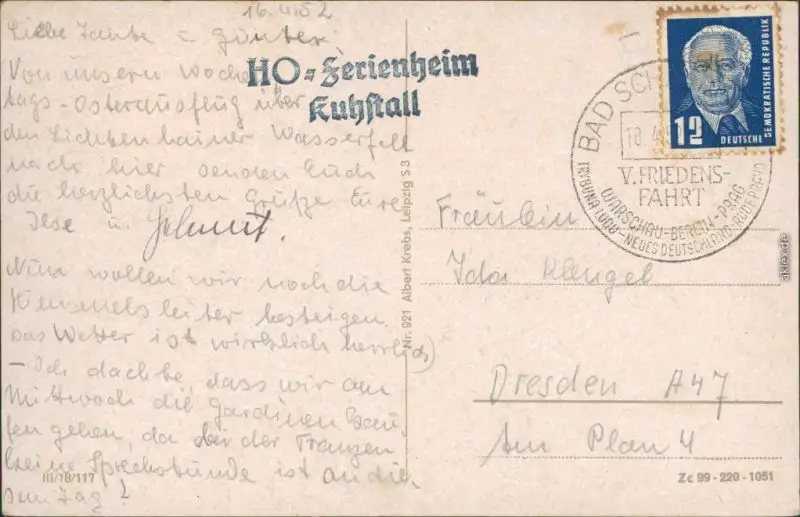 16.4.52
Liebe Tante u. Günter.
Von unserm Woche
tags-Osterausflug über
den Lichtenhainer Wasserfall
nach hier senden Euch
die herzlichsten Grüße Eure
Ilse u. Helmut.
Nun wollen wir noch die
Himmelsleiter besteigen.
Das Wetter ist wirklich herrlich
- Ich dachte, dass wir am
Mittwoch die Gardinen kau-
fen gehen, da bei der
keine Sprechstunde ist an die-
sem Tag!
HO-Ferienheim
Kuhstall
III/18/117
Nr. 921 Albert Krebs, Leipzig S 3
BAD SCH
18.4
V. FRIEDENS-
FAHRT
WARSCHAU-BERLIN-PRAG
TRYBUNA LUDU-NEUES DEUTSCHLAND-RUDE PRAVO
12
DEUTSCHE
DEMOKRATISCHE REPUBLIK
Fräulein
Ida Klengel
Dresden A47
Am Plan 4
Zc 99-220-1051
aklex.de